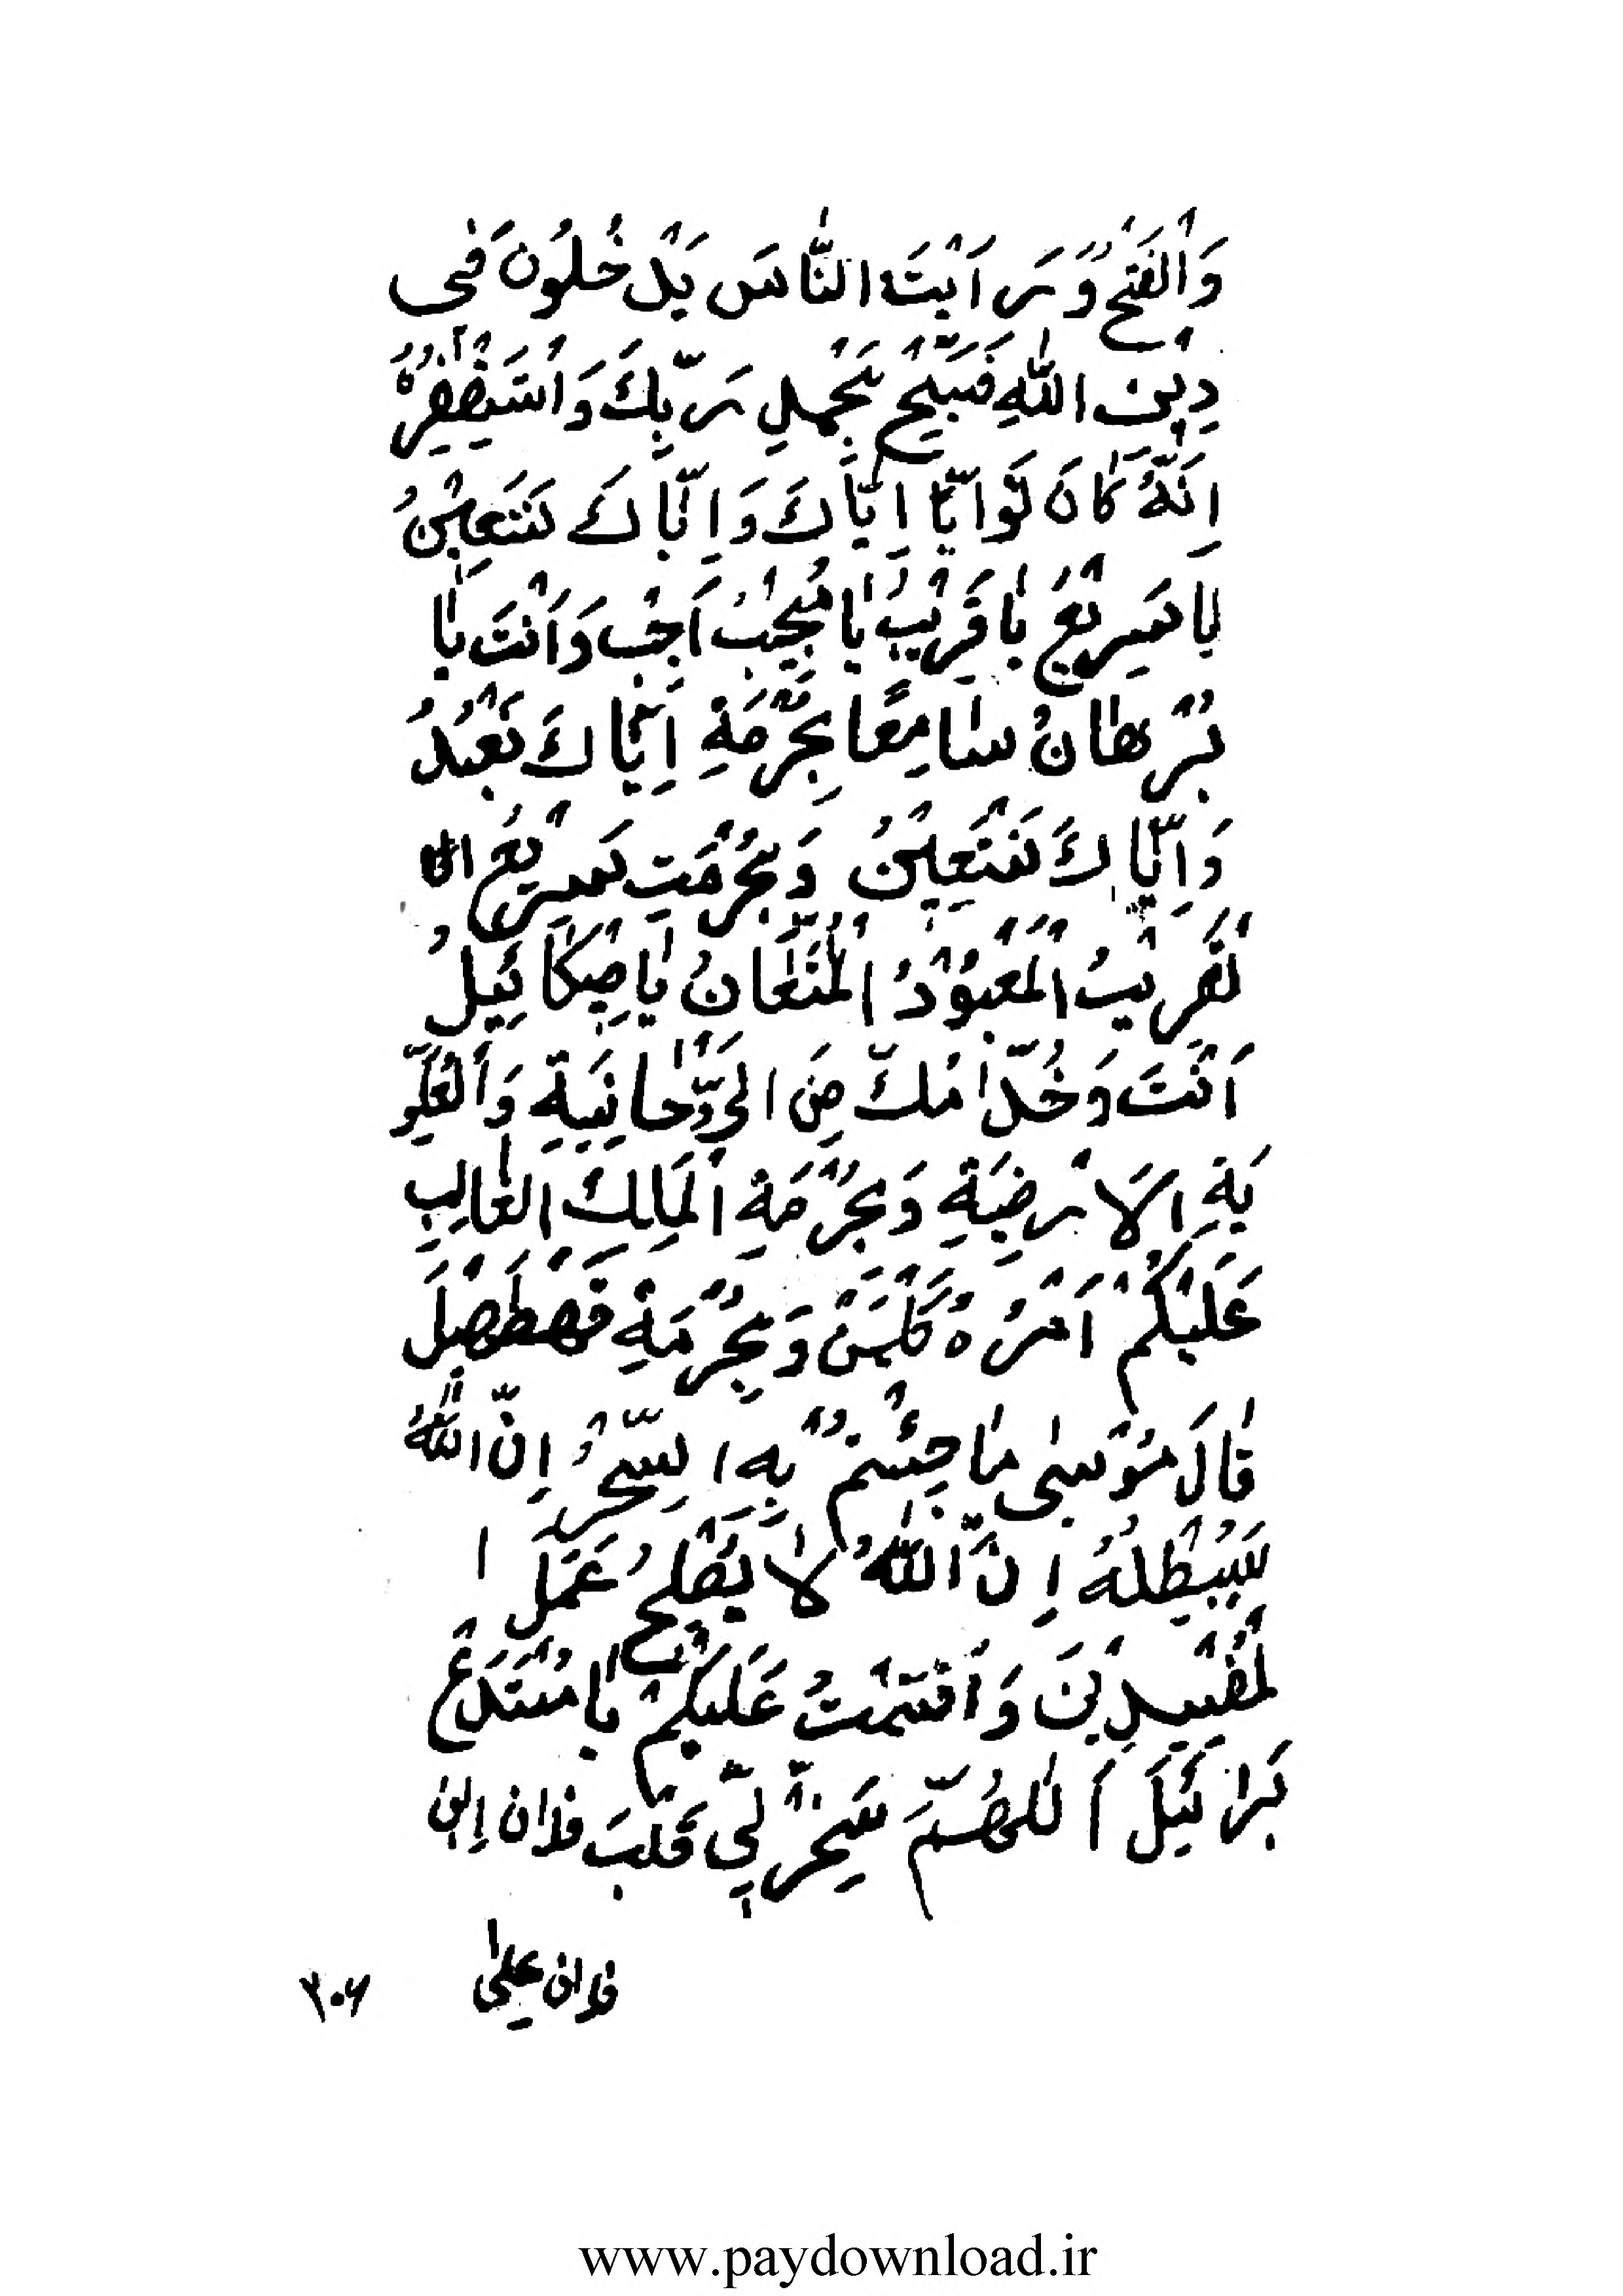 وَالْفَتْحُ وَرَاَيْتَ النّاسَ يَدْخُلُونَ فى
دِيْنِ اللّٰهِ فَسَبِّحْ بِحَمْدِ رَبِّكَ وَاسْتَغْفِرْهُ
اِنَّهُ كانَ تَوّابًا اِيّاكَ وَاِيّاكَ نَسْتَعِيْنُ
يا سَرِيْعُ يا قَرِيْبُ يا مُجِيْبُ اَجِبْ وَاَنْتَ يا
بُرْهانُ سامِعًا بِحُرْمَةِ اِيّاكَ نَعْبُدُ
وَاِيّاكَ نَسْتَعِيْنُ وَبِحُرْمَتِ سَرِيْعُ ال
لْقَرِيْبُ الْمَعْبُوْدُ الْمَنّانُ يا مِيكائِيلُ
اَنْتَ وَخُدّامُكَ مِنَ الرُّوْحانِيَةِ وَالْعُلْوِ
يَةِ الاَرْضِيَةِ وَبِحُرْمَةِ الْمَلِكِ الغالِبِ
عَلَيْكُمْ اَمْرُهُ وَبِحُرْمَةِ
قالَ مُوْسى ما جِئْتُمْ بِهِ السِّحْرُ اِنَّ اللّٰهُ
سَيُبْطِلُهُ اِنَّ اللّٰهُ لا يُصْلِحُ عَمَلَ ا
لْمُفْسِدِيْنَ وَاَقْسَمْتُ عَلَيْكُمْ يا
اَللّهُمَّ سَخِّرْ لِىّ قَلْبَ فلان اِبن
فلان على
۲۰۶
www.paydownload.ir